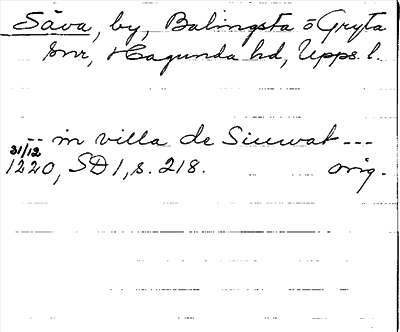 Säva, by, Balingsta o Gryta
snr, Hagunda hd, Upps. l.
-- in villa de Siuwat ---
31/12
1220, SD 1, s. 218. orig.